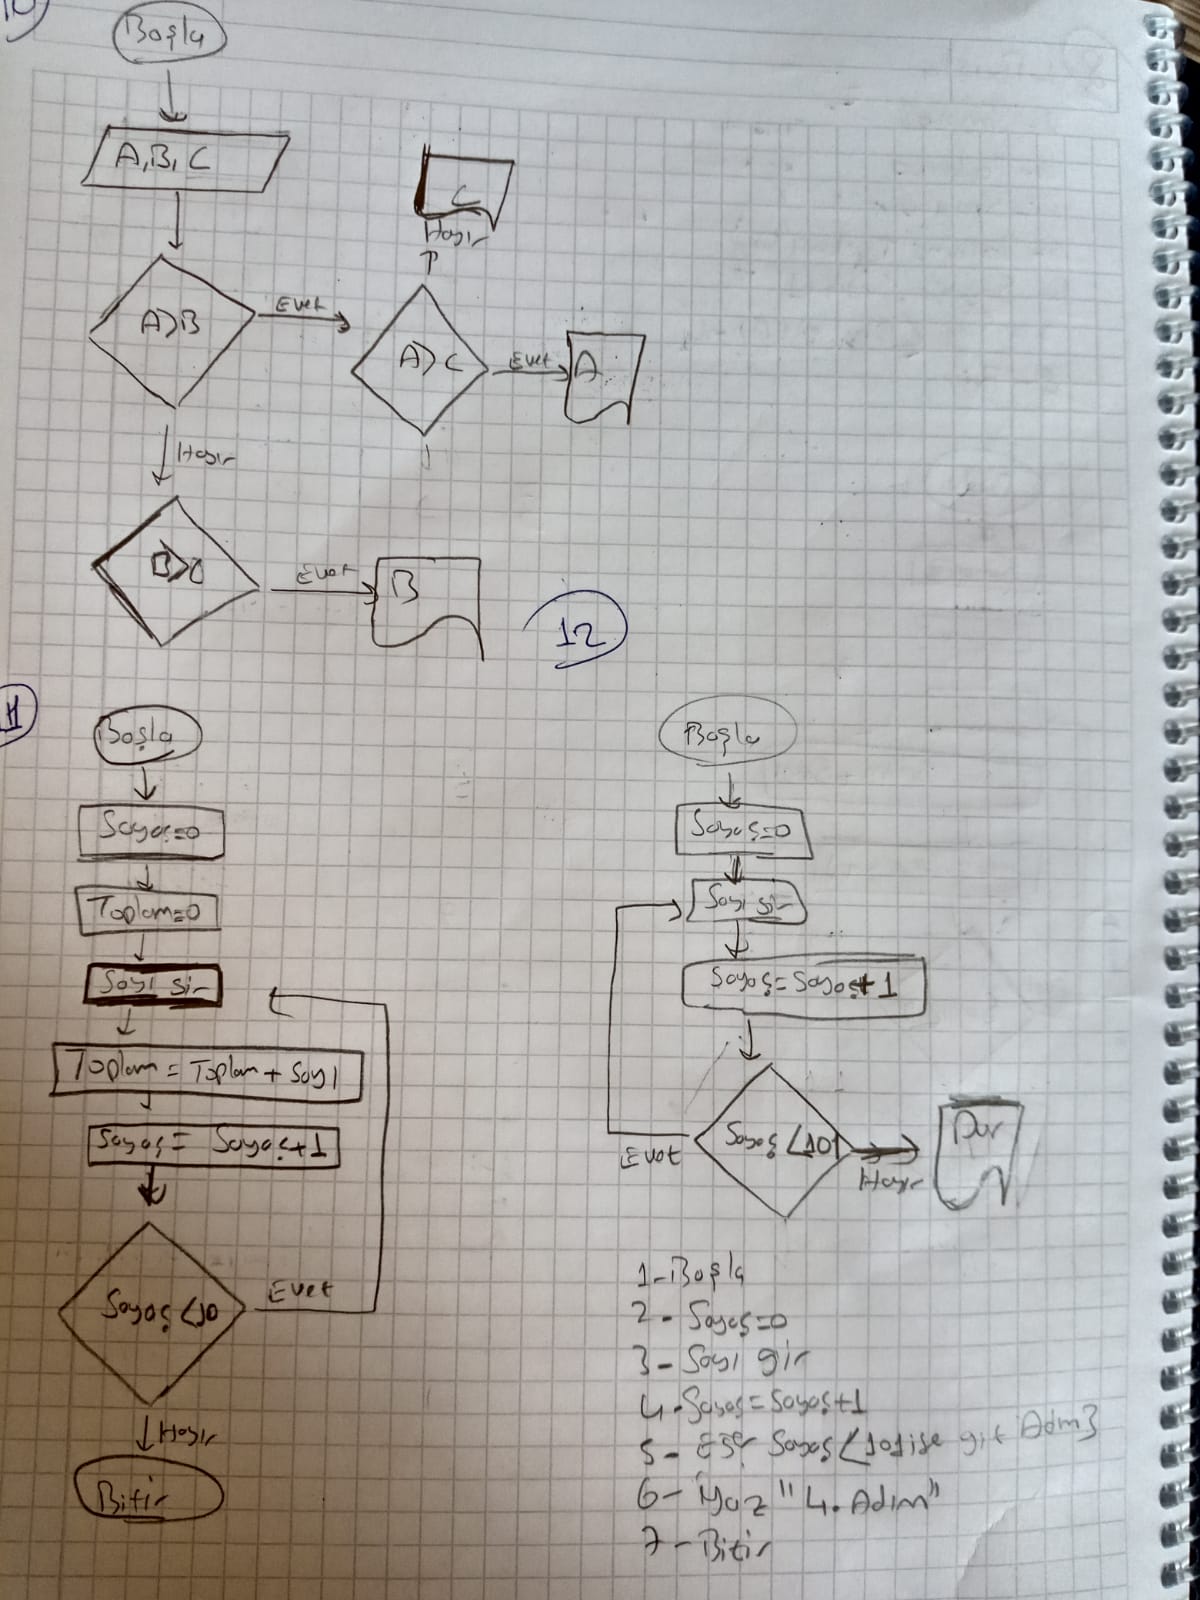 Başla
A,B,C
C
Hayır
A>B
Evet
A>C
Evet
A
Hayır
B>C
Evet
B
12
11
Başla
Sayaç=0
Toplam=0
Sayı gir
Toplam = Toplam + Sayı
Sayaç = Sayaç+1
Sayaç<10
Evet
Hayır
Bitir
Başla
Sayaç=0
Sayı gir
Sayaç=Sayaç+1
Sayaç<101
Evet
Hayır
Dur
1-Başla
2-Sayaç=0
3-Sayı gir
4-Sayaç=Sayaç+1
5-Eğer Sayaç<101ise git Adım3
6-Yaz "4.Adım"
7-Bitir